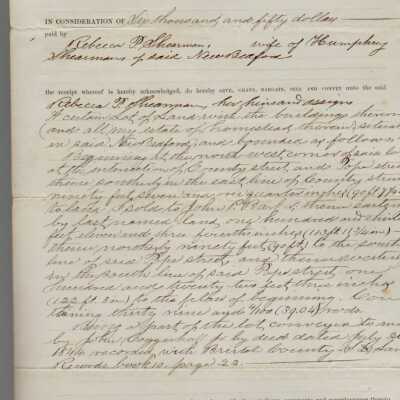 IN CONSIDERATION OF Six thousand and fifty dollars
paid by
Rebecca P. Shearman, wife of Humphrey
Shearman of said New Bedford
the receipt whereof is hereby acknowledged, do hereby GIVE, GRANT, BARGAIN, SELL AND CONVEY unto the said
Rebecca P. Shearman, her heirs and assigns
A certain Lot of Land with the buildings thereon
(and all my estate of homestead therein) situate
in said New Bedford, and bounded as follows
Beginning at the north west corner of said lot
at the intersection of County street and Pope street
thence southerly in the east line of County street
ninety feet seven and one quarter inches
to land I sold to John thence easterly
by last named land one hundred and
feet eleven and three fourth inches
thence northerly ninety feet (90 ft) to the south
line of said Pope street, and thence westerly
in the south line of said Pope street one
hundred and twenty two feet three inches
(122 ft 3 in) to the place of beginning. Con
taining thirty nine and 4/100 (39.04) rods.
Being a part of the lot, conveyed to me
by John Coggeshall Jr by deed dated July
1846 recorded with Bristol County S. D. Land
Records book 10. page 22.